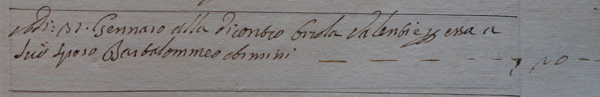 Adi: 31. Gennaro alla dicontro Orsola Valentie p essa a
suo sposo Bartolommeo Armini